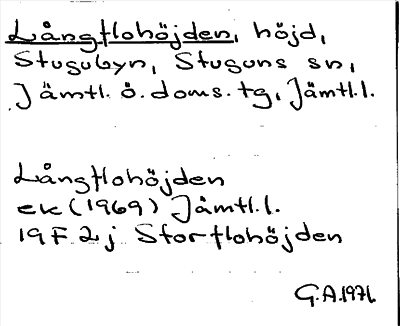 Långflohöjden, höjd,
Stugubyn, Stuguns sn,
Jämtl. ö. doms. tg, Jämtl. l.
Långflohöjden
ek (1969) Jämtl. l.
19F 2j Storflohöjden
G.A. 1971.